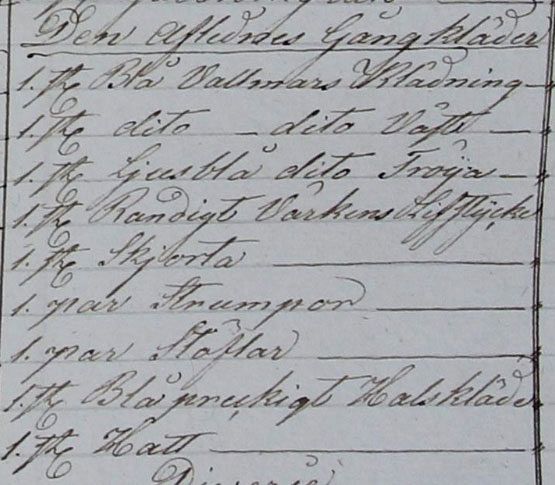 Den Aflidnes Gångkläder
1. st Blå Vallmars Klädning
1. st dito — dito Väst —
1. st Ljusblå dito Tröija —
1. st Randigt Värkens Lifstycke
1. st Skjorta
1. par Strumpor
1. par Stöflar
1. st Blå preckigt Halskläde
1. st Hatt
Diverse